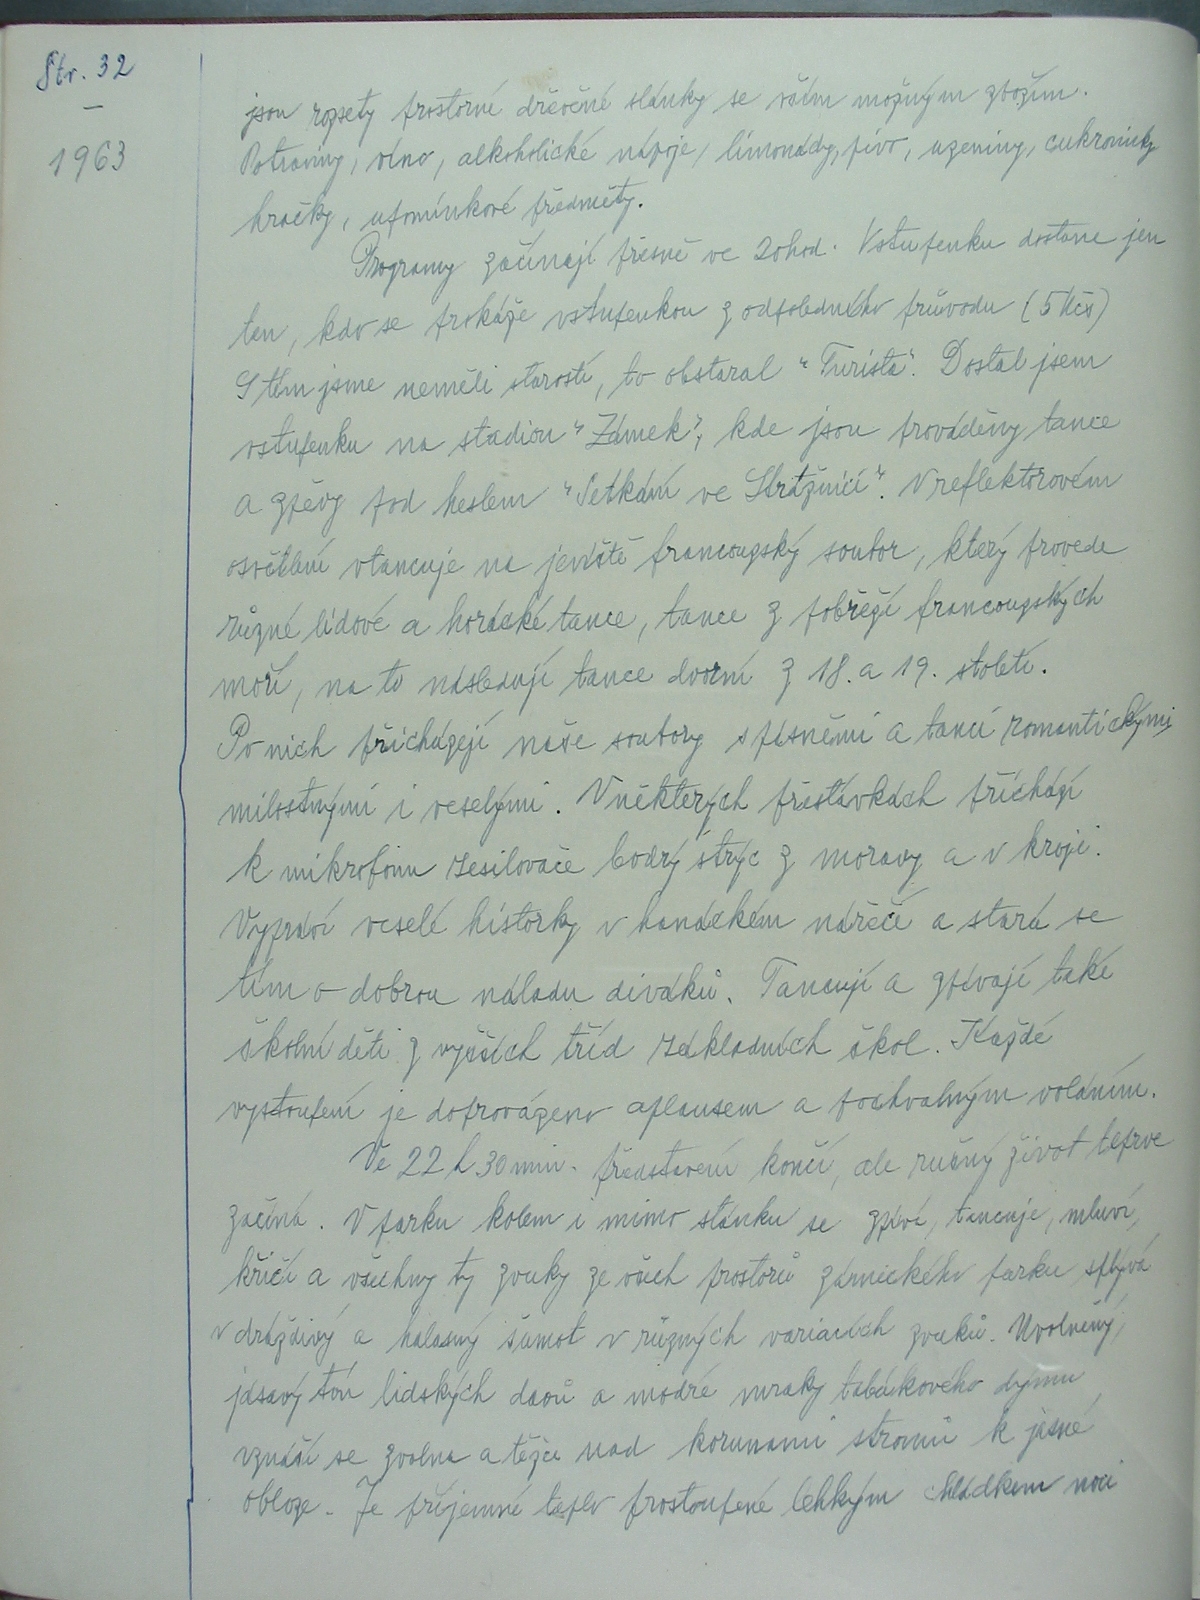 Str. 32
–
1963
jsou rozsety prostorné dřevěné stánky se vším možným zbožím.
Potraviny, víno, alkoholické nápoje, limonády, pivo, uzeniny, cukrovinky
hračky, upomínkové předměty.
Programy začínají přesně ve 20 hod. Vstupenku dostane jen
ten, kdo se prokáže vstupenkou z odpoledního průvodu (5 Kčs)
S tím jsme neměli starosti, to obstaral "Turista". Dostal jsem
vstupenku na stadion "Zámek", kde jsou prováděny tance
a zpěvy pod heslem "Setkání ve Strážnici". V reflektorovém
osvětlení vtancuje na jeviště francouzský soubor, který provede
různé lidové a horácké tance, tance z pobřeží francouzských
moří, na to následují tance dvorní z 18. a 19. století.
Po nich přicházejí naše soubory s písněmi a tanci romantickými,
milostnými i veselými. V některých přestávkách přichází
k mikrofonu zesilovače bodrý strýc z moravy a v kroji.
Vypráví veselé historky v hanáckém nářečí a stará se
tím o dobrou náladu diváků. Tancují a zpívají také
školní děti z vyšších tříd základních škol. Každé
vystoupení je doprovázeno aplausem a pochvalným voláním.
Ve 22 h 30 min. představení končí, ale rušný život teprve
začíná. V parku kolem i mimo stánku se zpívá, tancuje, mluví,
křičí a všechny ty zvuky ze všech prostorů zámeckého parku splývá
v dráždivý a halasný šumot v různých variacích zvuků. Uvolněný,
jásavý tón lidských davů a modré mraky tabákového dýmu
vznáší se zvolna a těžce nad korunami stromů k jasné
obloze. Je příjemné teplo prostoupené lehkým chládkem noci